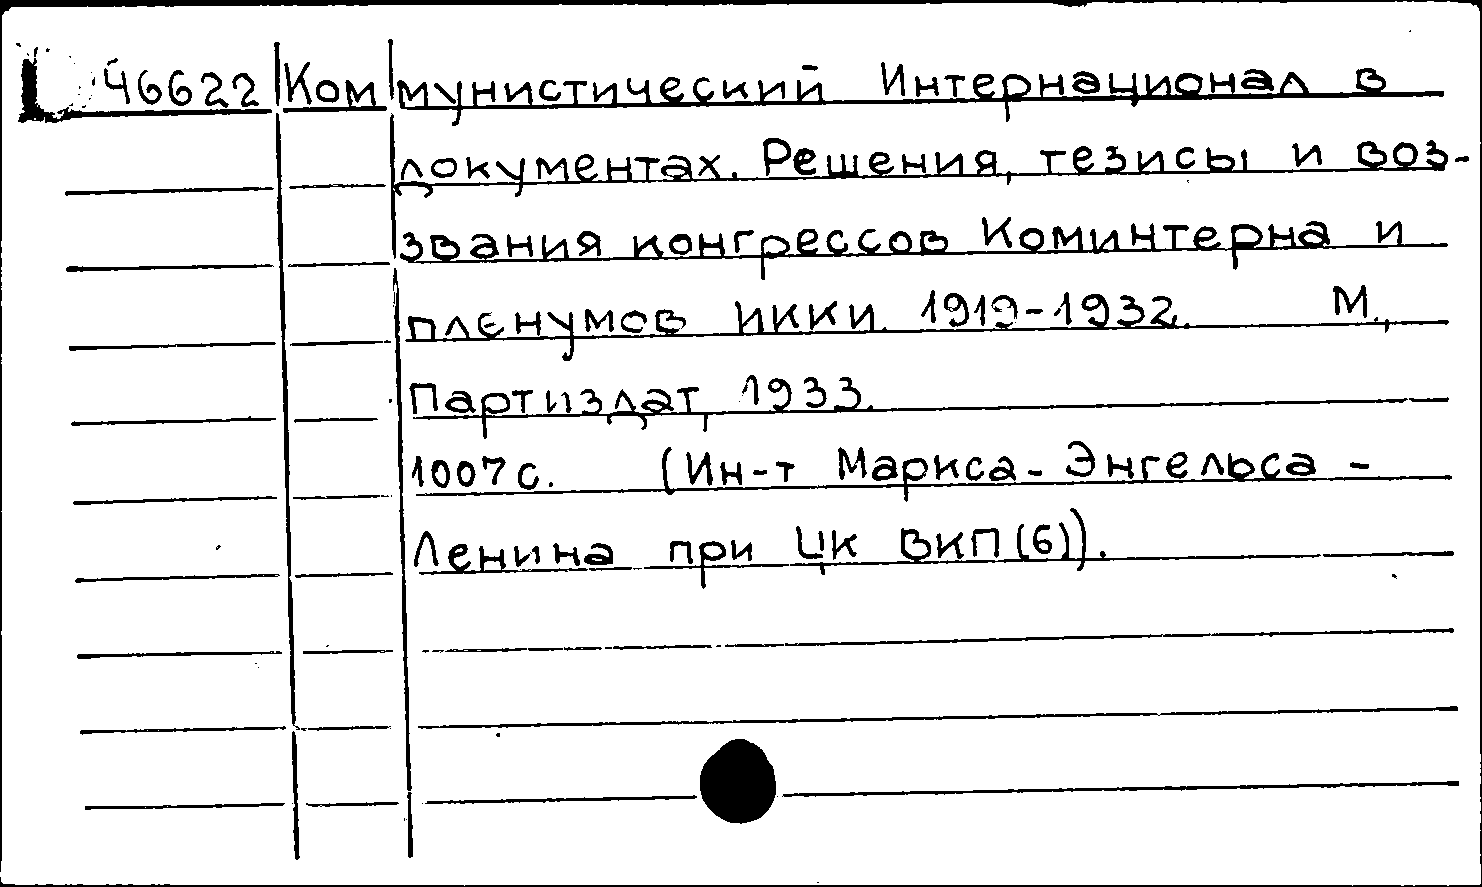 46622 Коммунистический Интернационал в
документах. Решения, тезисы и воз-
звания конгрессов Коминтерна и
пленумов ИККИ. 1919-1932. М.,
Партиздат, 1933.
1007 с. (Ин-т Маркса-Энгельса-
Ленина при ЦК ВКП(б)).